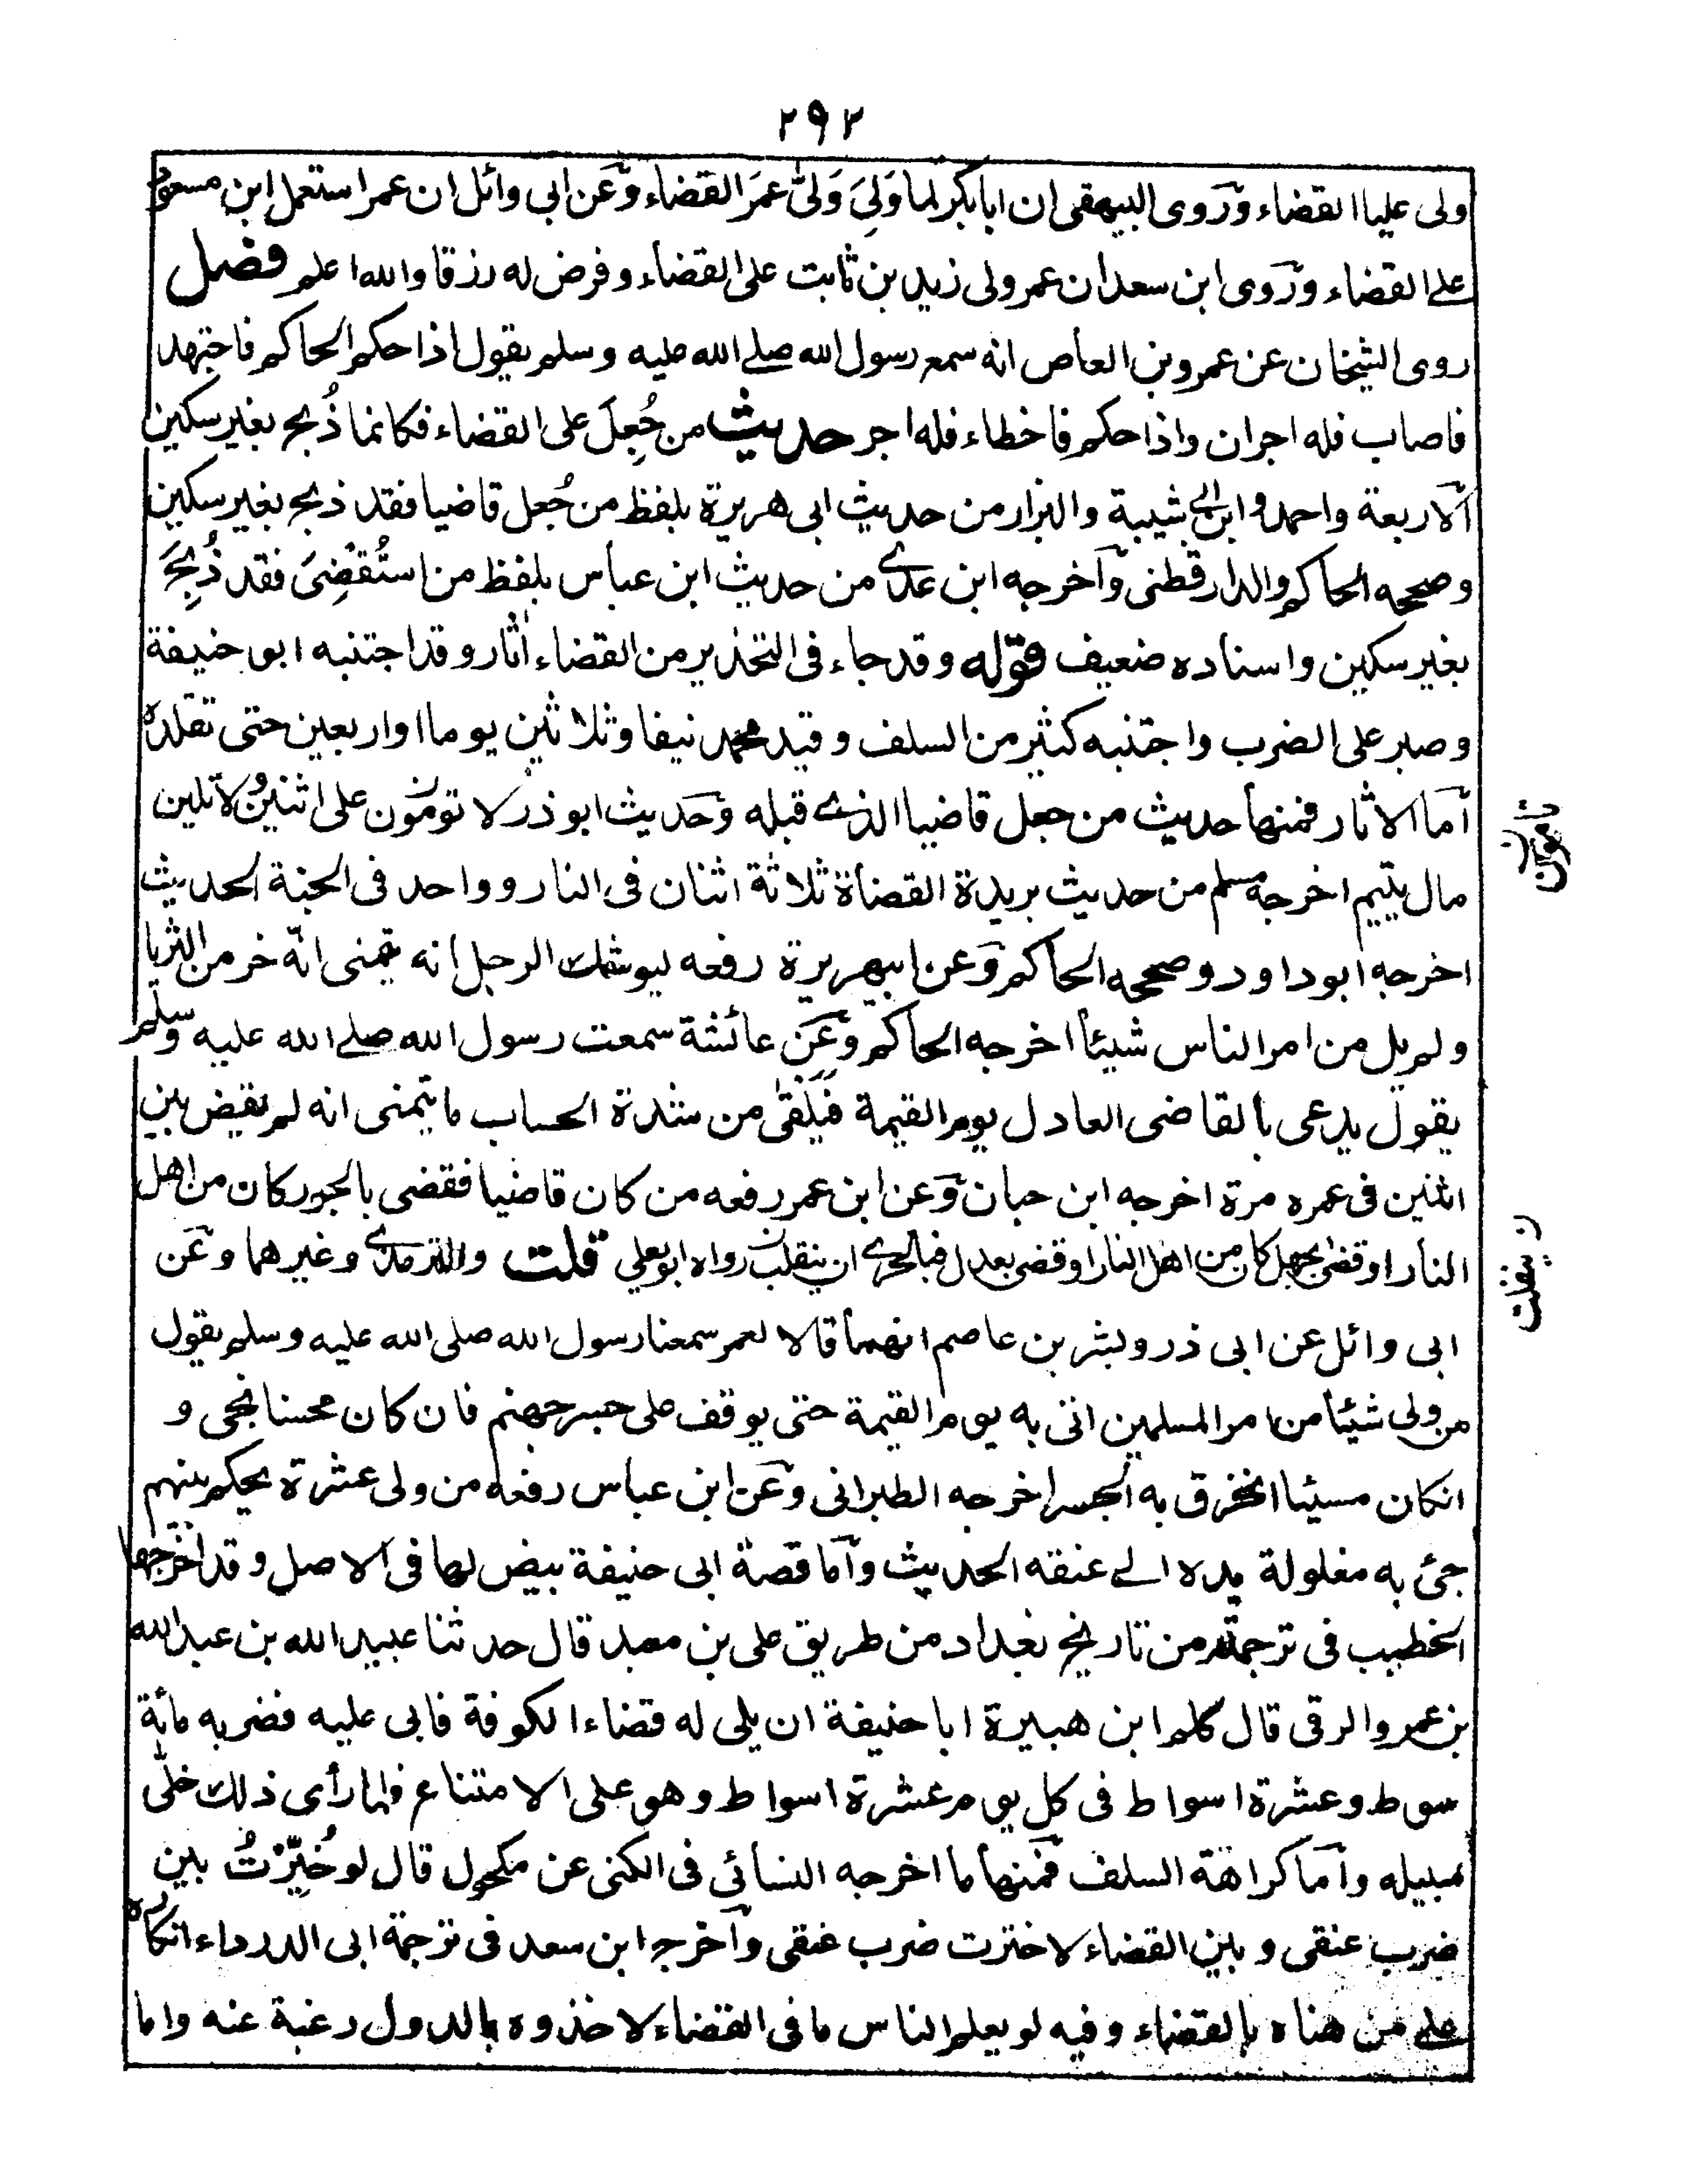 ٢٩٢
ولى عليا القضاء وروى البيهقى ان ابا بكر لما وَلِيَ وَلىّٰ عمَرَ القضاء وعن ابي وائل ان عمر استعمل ابن مسعود
على القضاء وروى ابن سعد ان عمر ولى زيد بن ثابت على القضاء وفرض له رزقا والله اعلم فصل
روى الشيخان عن عمرو بن العاص انه سمع رسول الله صلے الله عليه وسلم يقول اذا حكم الحاكم فاجتهد
فاصاب فله اجران واذا حكم فاخطاء فله اجر حديث من جُعِلَ على القضاء فكانما ذُبح بغير سكين
الاربعة واحمد وابن ابى شيبة والبزار من حديث ابى هريرة بلفظ من جُعل قاضيا فقد ذبح بغير سكين
وصححه الحاكم والدارقطنى واخرجه ابن عدے من حديث ابن عباس بلفظ من استُقْضِىَ فقد ذُبِحَ
بغير سكين واسناده ضعيف قوله وقد جاء فى التحذير من القضاء اٰثار وقد اجتنبه ابو حنيفة
وصبر على الضرب واجتنبه كثير من السلف وقيد محمد نيفا وثلاثين يوما او اربعين حتى تقلده
اما الاثار فمنها حديث من جعل قاضيا الذے قبله وحديث ابو ذر لا تومّرن على اثنين ولا تلين
مال يتيم اخرجه مسلم من حديث بريدة القضاة ثلاثة اثنان فى النار وواحد فى الجنة الحديث
اخرجه ابو داود وصححه الحاكم وعن ابيهريرة رفعه ليوشك الرجل انه يتمنى انه خر من الثريا
ولم يل من امر الناس شيئا اخرجه الحاكم وعن عائشة سمعت رسول الله صلے الله عليه وسلم
يقول يدعى بالقاضى العادل يوم القيمة فيلقى من شدة الحساب ما يتمنى انه لم يقض بين
اثنين فى عمره مرة اخرجه ابن حبان وعن ابن عمر رفعه من كان قاضيا فقضى بالجور كان من اهل
النار او قضى بجهل كان من اهل النار او قضى بعدل فبالحرے ان ينقلب رواه ابو يعلي قلت والترمذے وغيرهما وعن
ابى وائل عن ابى ذر وبشر بن عاصم انهما قالا لعمر سمعنا رسول الله صلى الله عليه وسلم يقول
من ولى شيئا من امر المسلمين اتى به يوم القيمة حتى يوقف على جسر جهنم فان كان محسنا نجى و
انكان مسيئا انخرق به الجسر اخرجه الطبرانى وعن ابن عباس رفعه من ولى عشرة يحكم بينهم
جئ به مغلولة يده الے عنقه الحديث واما قصة ابى حنيفة بيض لها فى الاصل وقد اخرجها
الخطيب فى ترجمته من تاريخ بغداد من طريق على بن معبد قال حدثنا عبيد الله بن عبد الله
بن عمرو الرقى قال كلم ابن هبيرة ابا حنيفة ان يلى له قضاء الكوفة فابى عليه فضربه مائة
سوط وعشرة اسواط فى كل يوم عشرة اسواط وهو على الامتناع فلما رأى ذلك خلّى
سبيله واما كراهة السلف فمنها ما اخرجه النسائي فى الكنى عن مكحول قال لو خُيِّرْتُ بين
ضرب عنقى وبين القضاء لاخترت ضرب عنقى واخرج ابن سعد فى ترجمة ابى الدرداء انكاره
على من هناه بالقضاء وفيه لو يعلم الناس ما فى القضاء لاخذوه بالدول رغبة عنه واما